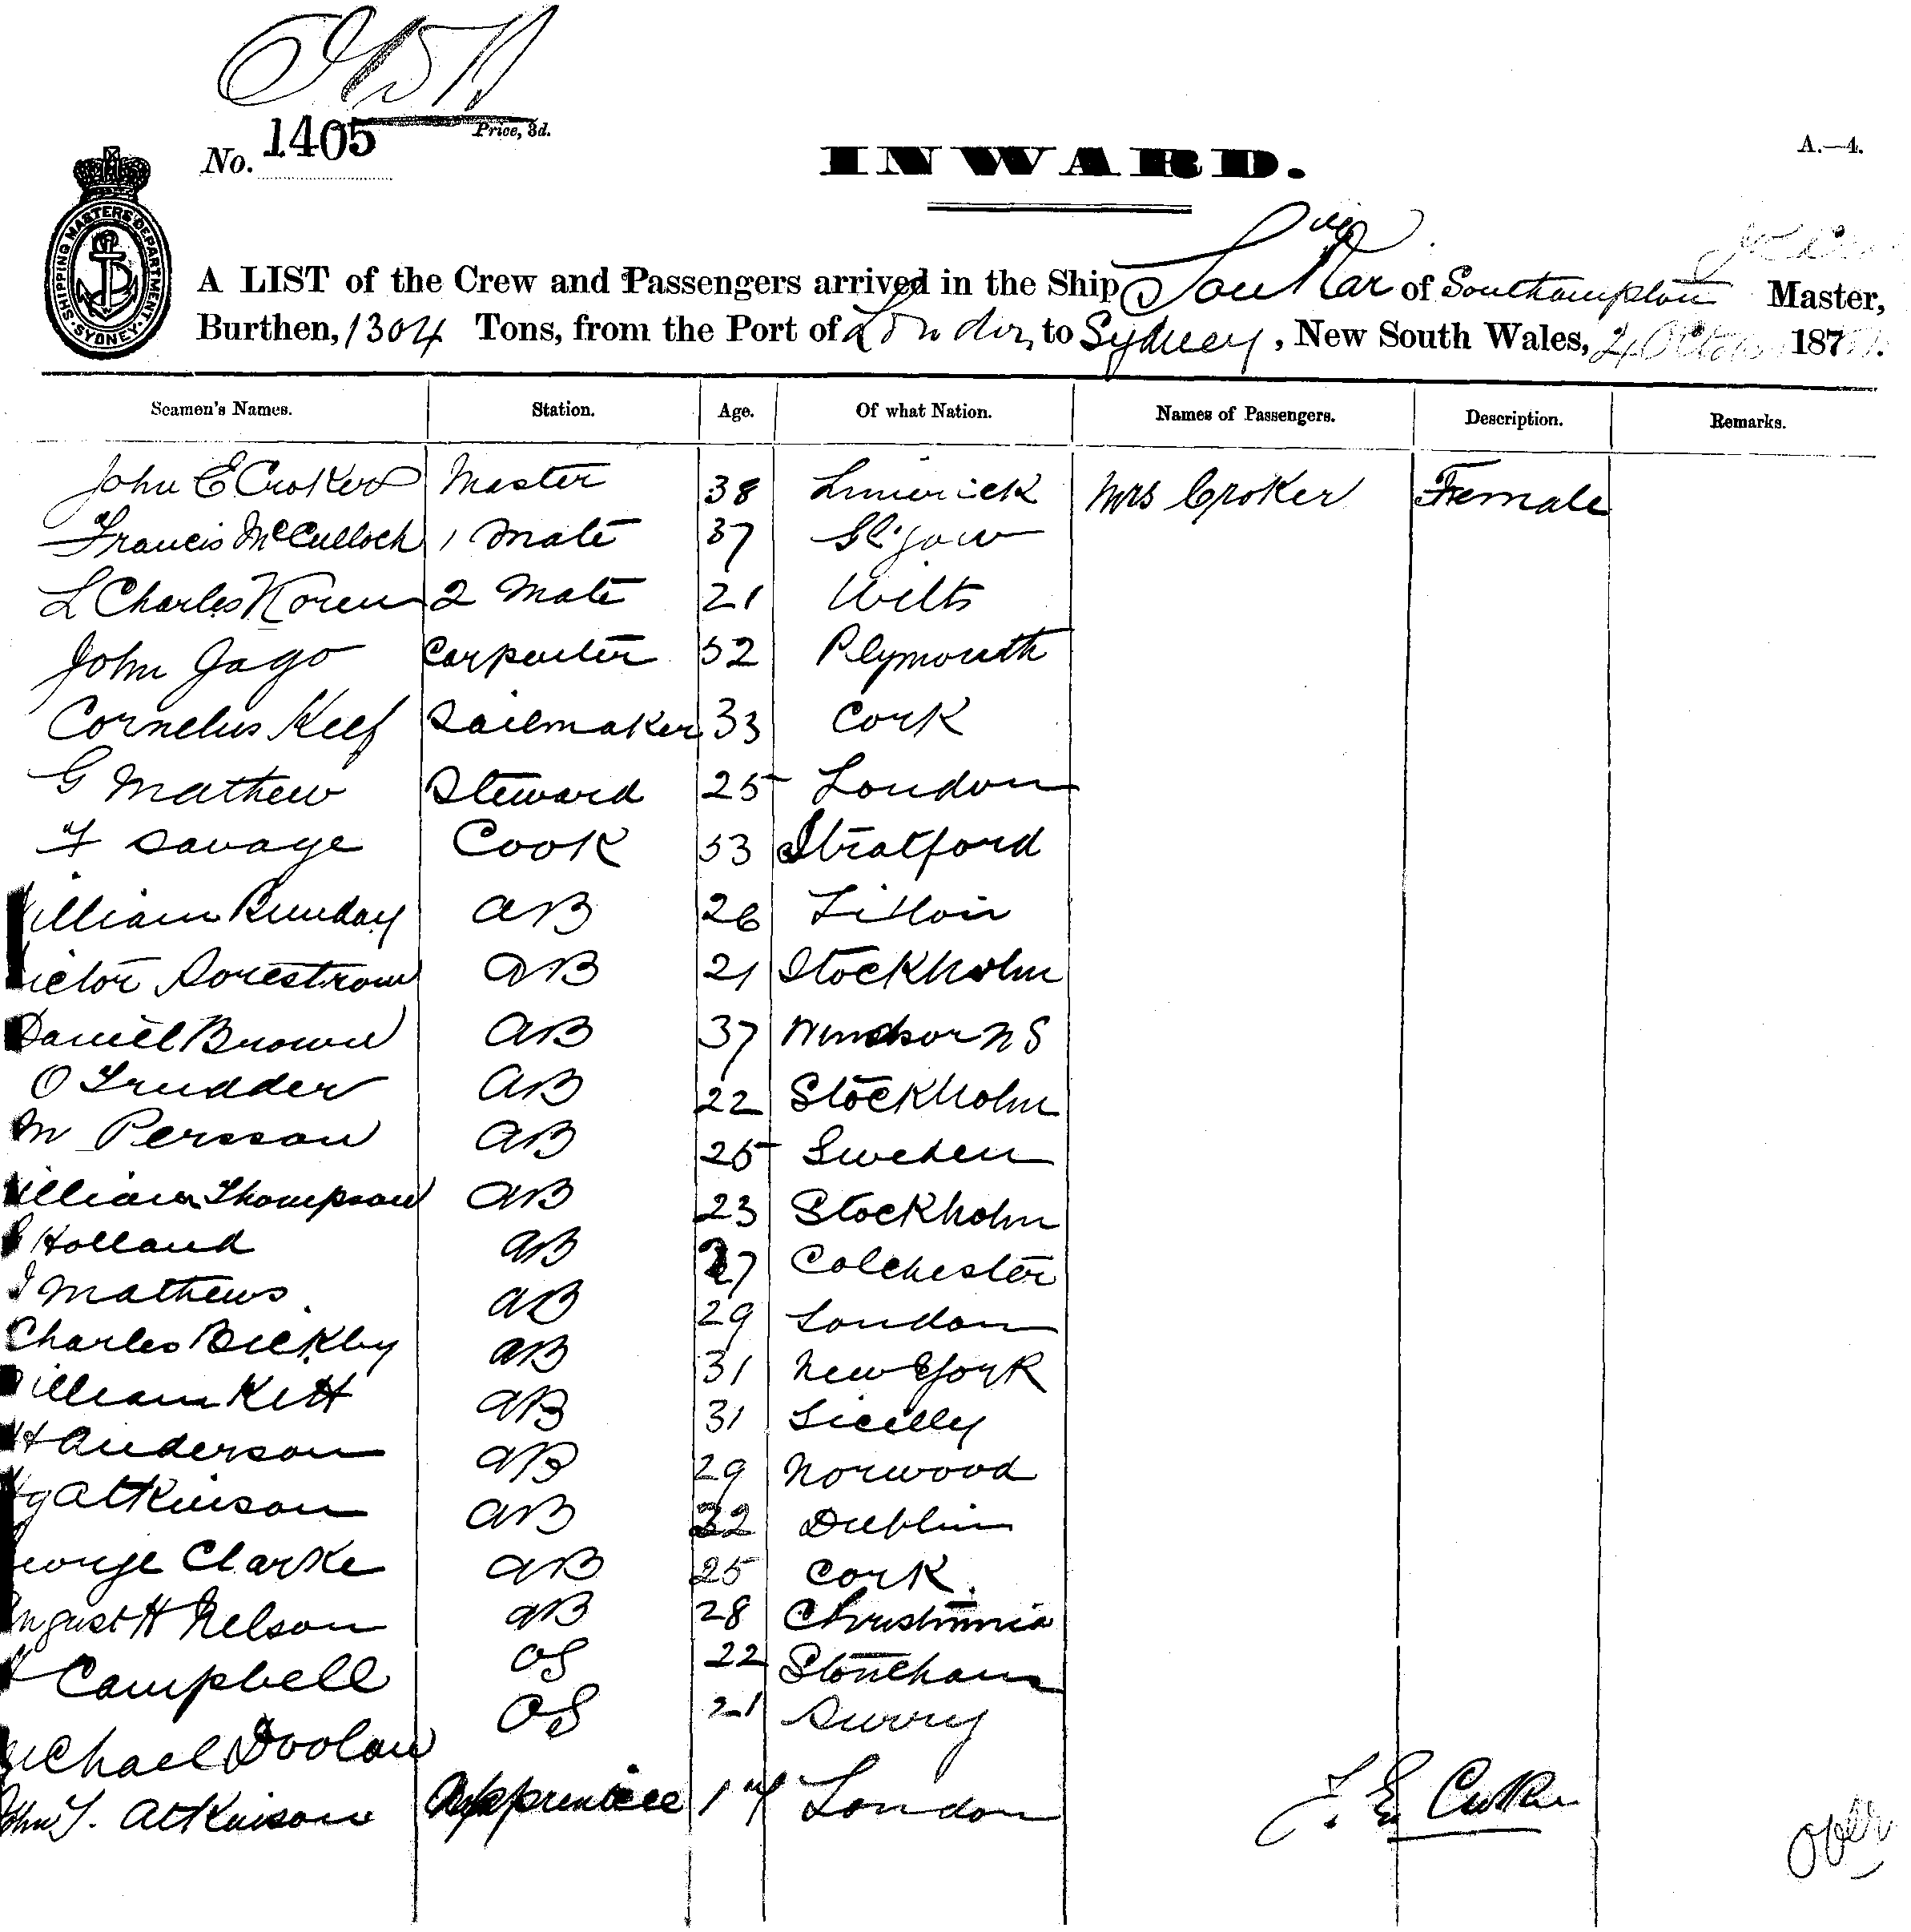 No. 1405 Price, 3d.
INWARD.
A.—4.
SHIPPING MASTERS DEPARTMENT. SYDNEY.
A LIST of the Crew and Passengers arrived in the Ship Sou Kar of Southampton Master,
Burthen, 1304 Tons, from the Port of London to Sydney, New South Wales, 187
Seamen's Names. Station. Age. Of what Nation. Names of Passengers. Description. Remarks.
John E Croker Master 38 Limerick Mrs Croker Female
Francis McCulloch 1 Mate 37 Sligow
L Charles Koren 2 Mate 21 Wilts
John Jago Carpenter 52 Plymouth
Cornelus Keef Sailmaker 33 Cork
G Mathew Steward 25 London
F Savage Cook 53 Stratford
William Bunday AB 26
Victor AB 21 Stockholm
Daniel Brown AB 37 Windsor N S
O Trudder AB 22 Stockholm
M Persson AB 25 Sweden
William Thompson AB 23 Stockholm
Holland AB 27 Colchester
J Mathews. AB 29 London
Charles Bickby AB 31 New York
William Kitt AB 31 Sicilly
H Anderson AB 29 Norwood
Hy Atkinson AB 32 Dublin
George Clarke AB 25 Cork.
August H Nelson AB 28 Christinnia
Campbell OS 22 Stoneham
Michael Doolan OS 21 Surry
John T. Atkinson Apprentice 17 London
J. E. Croker
over